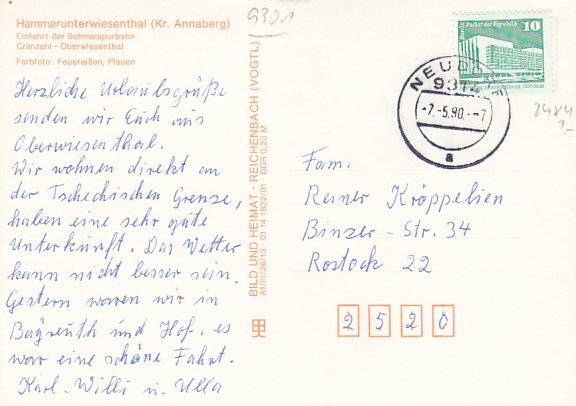 Hammerunterwiesenthal (Kr. Annaberg)
Einfahrt der Schmalspurbahn
Cranzahl - Oberwiesenthal
Farbfoto: Feuereißen, Plauen
9301
Herzliche Urlaubsgrüße
senden wir Euch aus
Oberwiesenthal.
Wir wohnen direkt an
der Tschechischen Grenze,
haben eine sehr gute
Unterkunft. Das Wetter
kann nicht besser sein.
Gestern waren wir in
Bayreuth und Hof, es
war eine schöne Fahrt.
Karl-Willi u. Ulla
BILD UND HEIMAT · REICHENBACH (VOGTL)
A1/III/26/13 · 01 14 1832/01 DDR 0,20 M
Palast der Republik 10
NEUDORF
9312
-7.-5.90.-7
a
2484
1,-
Fam.
Reiner Kröppelien
Binzer - Str. 34
Rostock 22
2 5 2 0